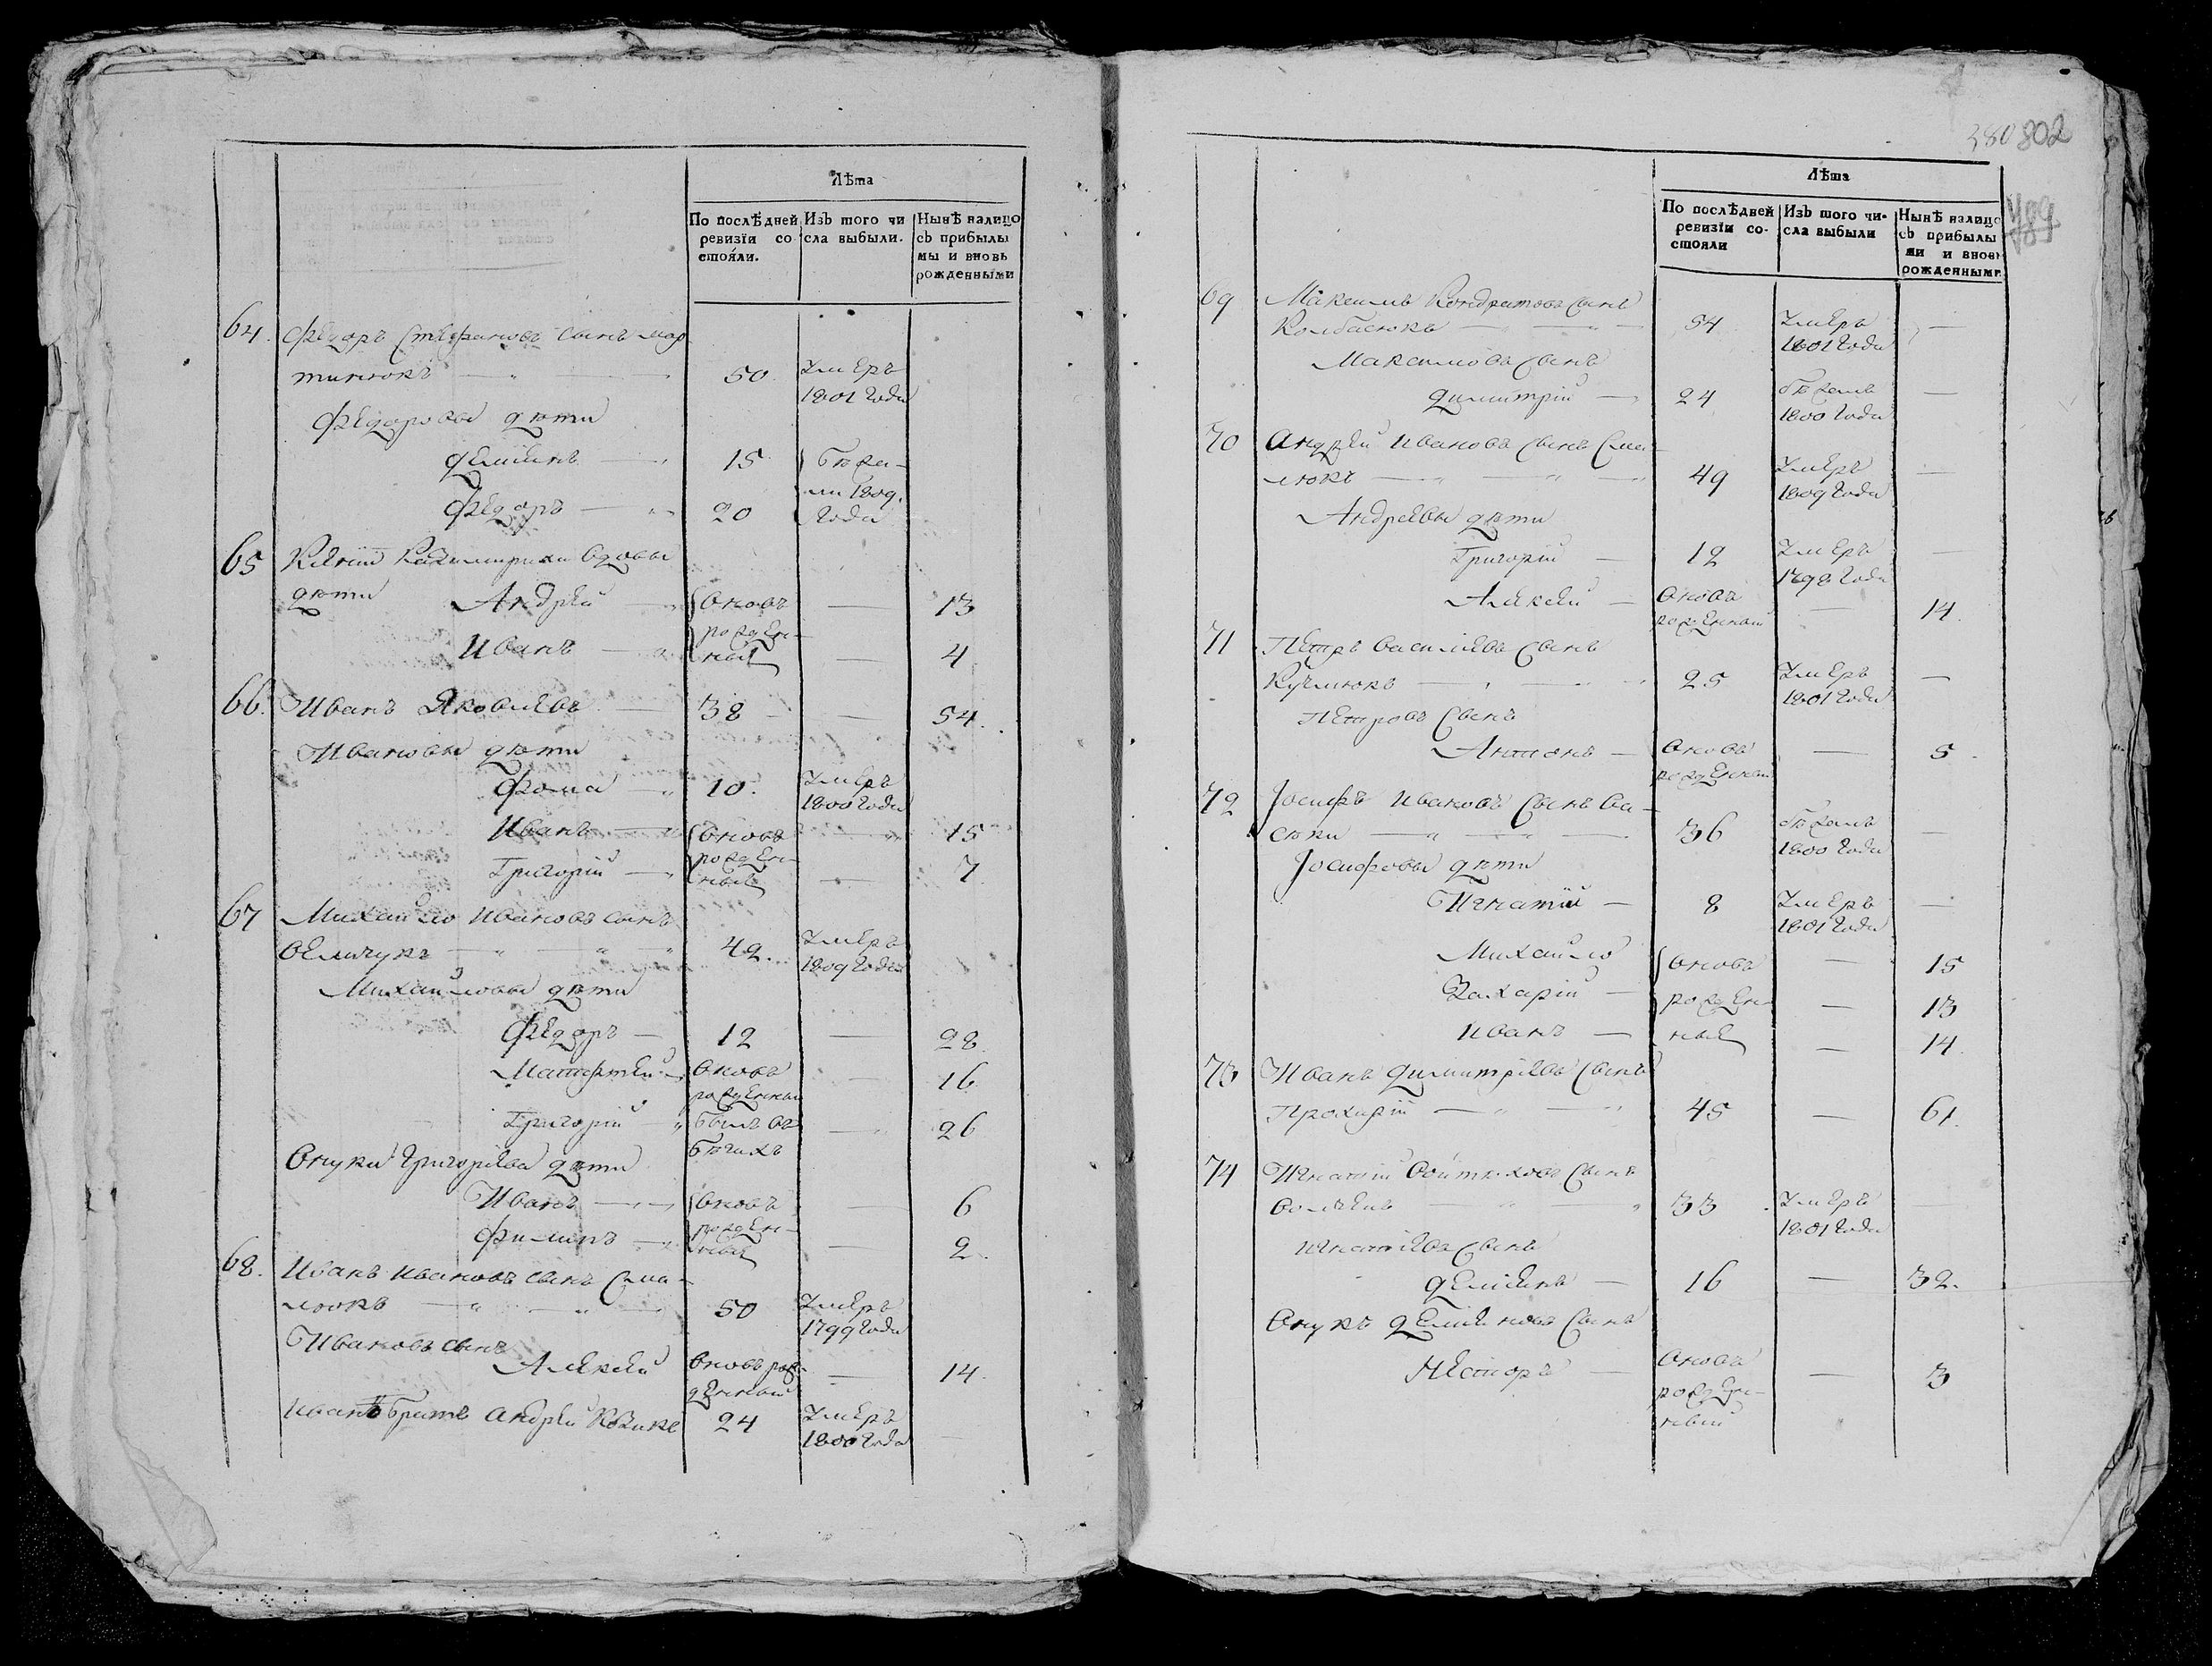 Лѣта
По послѣдней ревизїи состоя́ли.
Изъ того числа выбыли.
Нынѣ налицо съ прибылымы и вновь рожденными
64. Федоръ Стефановъ сынъ Мар
тинюкъ — 50 умеръ
1801 года
Федоровы дѣти
Демїянъ — 15 бѣжа-
ли 1809.
Федоръ — 20 года
65 Казимирихи вдовы
дѣти Андрей — вновь — 13
рожден-
Иванъ — ные — 4
66. Иванъ Яковлевъ — 38 — 54.
Ивановы дѣти
Фома — 10. умеръ
1800 года
Иванъ — вновь — 15
рожден-
Григорїй — ные — 7
67 Михайло Ивановъ сынъ
Величукъ — 42. умеръ
1809 года
Михайловы дѣти
Федоръ — 12 — 28
Матфтей — вновь — 16
рожденный
Григорїй — былъ въ — 26
бѣгахъ
Внуки Григорїева дѣти
Иванъ — вновь — 6
рожден-
Филипъ — ные — 2.
68. Иванъ Ивановъ сынъ Сма-
люкъ — 50 умеръ
1799 года
Ивановъ сынъ
Алексей вновь рож- — 14.
денный
Ивана братъ Андрей 24 умеръ
1800 года —
380 802
Лѣта
По послѣдней ревизїи состояли
Изъ того числа выбыли
Нынѣ налицо съ прибылыми и вновь рожденными
69 Максимъ Кондратовъ сынъ
Колбасюкъ — 54 умеръ —
1801 года
Максимовъ сынъ
Димитрїй — 24 бѣжалъ —
1800 года
70 Андрей Ивановъ сынъ Сма-
люкъ — 49 умеръ —
1809 года
Андреевы дѣти
Григорїй — 12 умеръ —
1798 года
Алексей — вновь — 14.
рожденный
71 Петръ Василїевъ сынъ
Кучмюкъ — 25 умеръ —
1801 года
Петровъ сынъ
Антонъ — вновь — 5
рожденный
72 Іосифъ Ивановъ сынъ Ва-
сюки — 36 бѣжалъ —
1800 года
Іосифовы дѣти
Игнатїй — 8 умеръ —
1801 года
Михайло вновь — 15
Захарїй — рожден- — 13
Иванъ — ные — 14.
73 Иванъ Димитрїевъ сынъ
45 — 61.
74 Игнатїй сынъ
33 умеръ —
1801 года
Игнатїевъ сынъ
Демїянъ — 16 — 32.
Внукъ Демїяновъ сынъ
Несторъ — вновь — 3
рожден-
ный